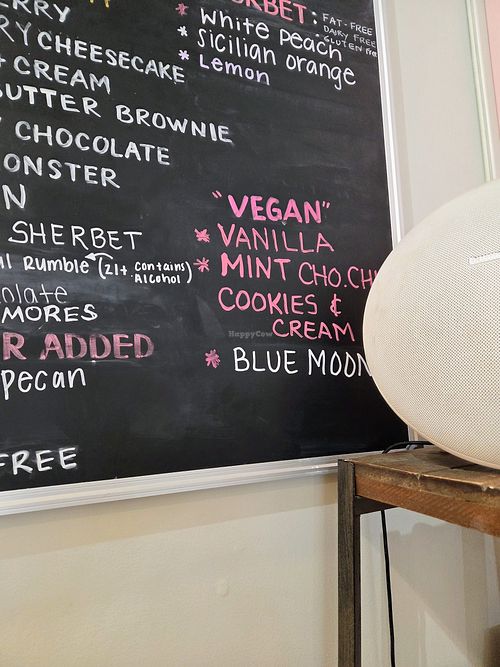 ERRY
RY CHEESECAKE
+ CREAM
UTTER BROWNIE
CHOCOLATE
ONSTER
N
SHERBET
al Rumble (21+ contains Alcohol)
olate
MORES
R ADDED
pecan
FREE
RBET: FAT-FREE
DAIRY FREE
GLUTEN FREE
* White peach
* Sicilian orange
* Lemon
"VEGAN"
* VANILLA
* MINT CHO.CHI
COOKIES &
CREAM
* BLUE MOON
HappyCow